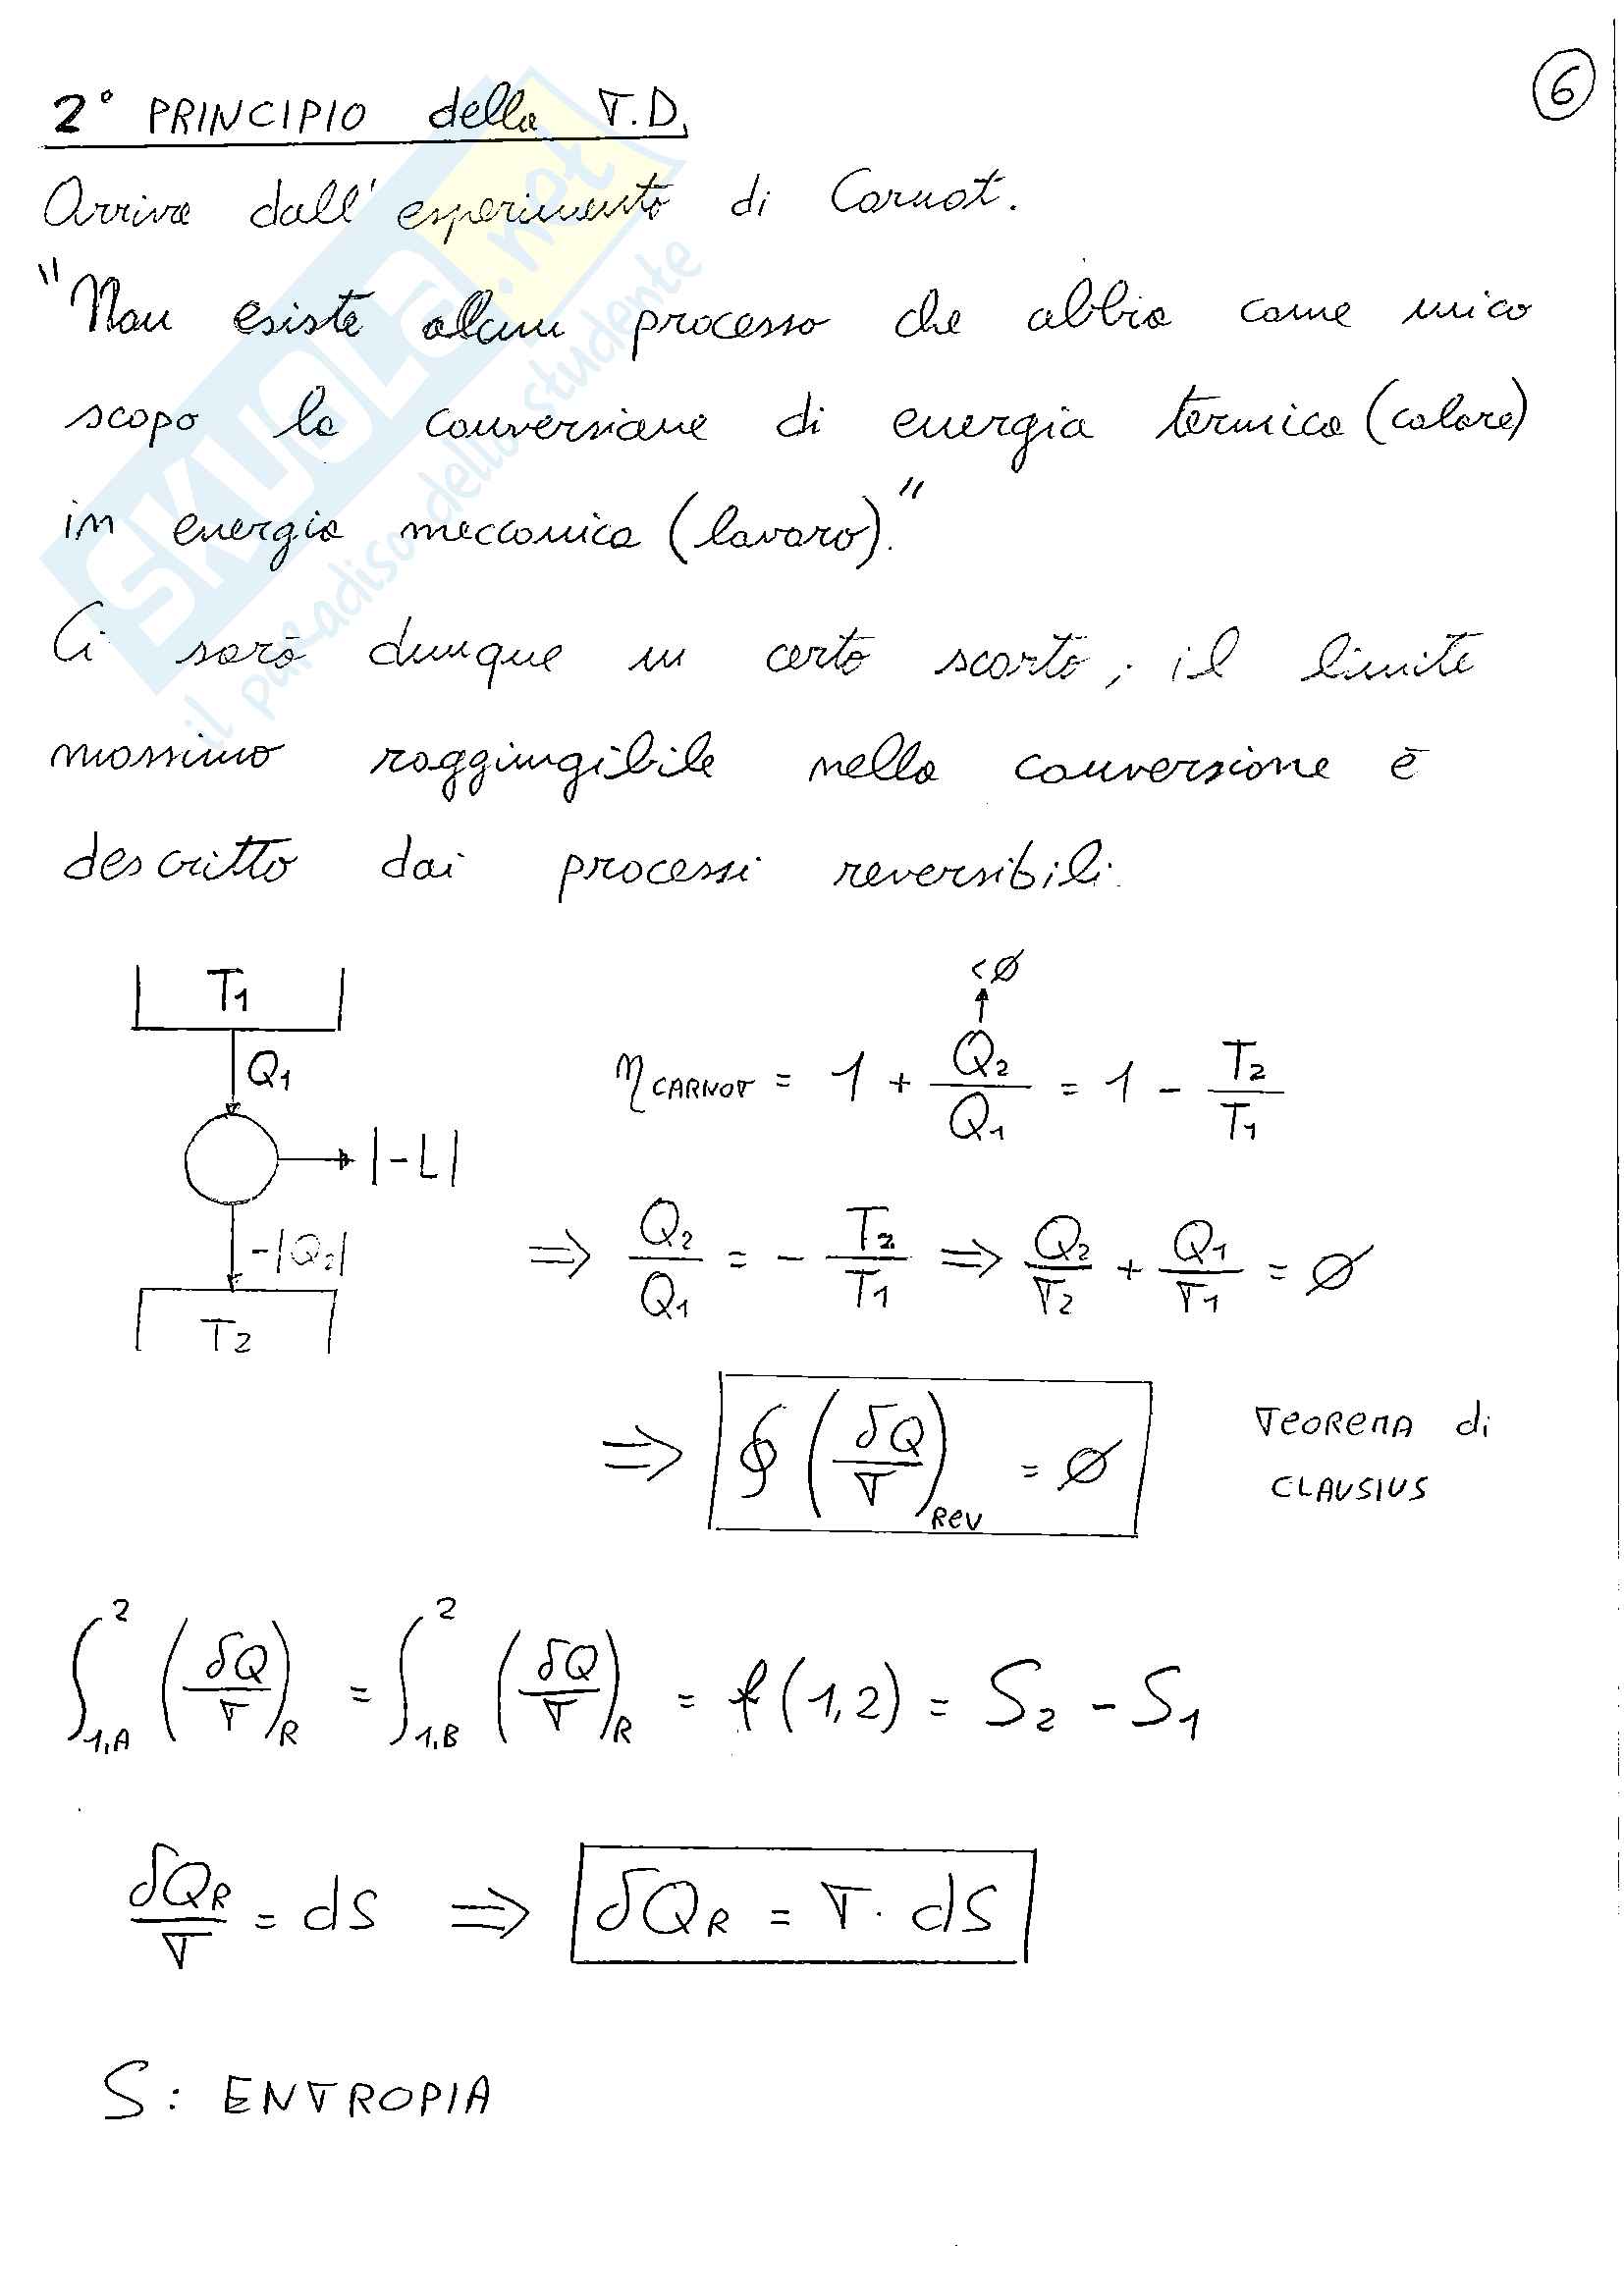 6
2° PRINCIPIO della T.D.
Arriva dall'esperimento di Carnot.
"Non esiste alcun processo che abbia come unico
scopo la conversione di energia termica (calore)
in energia meccanica (lavoro)."
Ci sarà dunque un certo scarto; il limite
massimo raggiungibile nella conversione è
descritto dai processi reversibili.
T1
Q1
|-L|
-|Q2|
T2
<∅
ηCARNOT = 1 + Q2/Q1 = 1 - T2/T1
⇒ Q2/Q1 = - T2/T1 ⇒ Q2/T2 + Q1/T1 = ∅
⇒ ∮ (δQ/T)Rev = ∅ TEOREMA di
CLAUSIUS
∫1,A 2 (δQ/T)R = ∫1,B 2 (δQ/T)R = f(1,2) = S2 - S1
δQR/T = dS ⇒ δQR = T · dS
S: ENTROPIA
SKUOLA.net
il paradiso dello studente